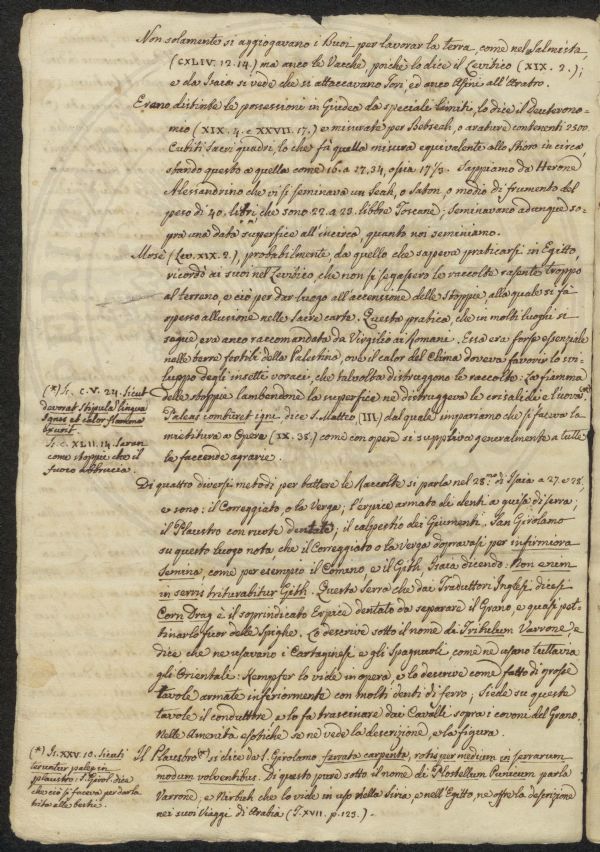 Non solamente si aggiogavano i Buoi per lavorar la terra, come nel Salmista,
(CXLIV. 12. 14) ma anco le Vacche, poichè lo dice il Levitico (XIX. 2.);
e da Isaia si vede che si attaccavano Tori, ed anco Asini all'Aratro.
Erano distinte le possessioni in Giudea da speciale limiti, lo dice il Deuterono-
mio (XIX. 4. e XXVII. 17.) e misurate per Betreah, o arature contenenti 2500
Cubiti Sacri quadri, lo che fà quella misura equivalente allo Stioro in circa,
stando questo a quella come 16. a 27.34, ossia 17 1/3. Sappiamo da Herone
Alessandrino che vi si seminava un Seah, o Saton, o modio di frumento del
peso di 40. litri, che sono 22. a 23. libbre Toscane; Seminavano adunque so-
pra una data superfice all'incirca, quanto noi seminiamo.
Mosè (Lev. XIX. 2), probabilmente, da quello che sapeva praticarsi in Egitto,
ricordò ai suoi nel Levitico, che non si segassero le raccolte rasente troppo
al terreno, e ciò per dar luogo all'accensione delle Stoppie, alla quale si fà
spesso allusione nelle Sacre carte. Questa pratica, che in molti luoghi si
segue era anco raccomandata da Virgilio ai Romani. Essa era forse essenziale
nelle terre fertili della Palestina, ove il calor del Clima doveva favorir lo svi-
luppo degli insetti voraci, che talvolta distruggono le raccolte. La fiamma
delle stoppie lambendone la superfice ne distruggeva le crisalidi e l'uova. (*)
Paleas comburet igni, dice S. Matteo, (III) dal quale impariamo che si faceva la
mietitura a Opera (IX. 38.) come con opere si suppliva generalmente a tutte
le faccende agrarie.
(*) Is. c. V. 24. Sicut
devorat Stipula lingua
Ignis et calor flammæ
exurit.
Is. c. XLII. 14. Saran
come stoppie che il
fuoco abbrucia.
Di quattro diversi metodi per battere le Raccolte si parla nel 28.mo di Isaia a 27. e 28.
e sono: il Correggiato, o la Verga; l'erpice armato di denti a guisa di serra;
il Plaustro con ruote dentate; il calpestio dei Giumenti. San Girolamo
su questo luogo nota che il Correggiato o la Verga dopravasi per infirmiora
Semina, come per esempio il Comino, e il Gith Isaia dicendo: Non enim
in serris triturabitur Gith. Questa Serra che dai Traduttori Inglesi dicesi
Corn Drag è il soprindicato Erpice dentato da separare il Grano, e quasi pet-
tinarlo fuor delle Spighe. Lo descrive sotto il nome di Tribulum Varrone, e
dice che ne usavano i Cartaginesi e gli Spagnuoli, come ne usano tuttavia
gli Orientali. Kempfer lo vide in opera, e lo descrive come fatto di grosse
tavole armate inferiormente con molti denti di ferro; Siede su queste
tavole il conduttore, e lo fa trascinare dai Cavalli sopra i covoni del Grano.
Nelle Amenità esotiche se ne vede la descrizione, e la figura.
(*) Is. XXV. 10. Sicuti
teruntur paleæ in
plaustro. S. Girol. dice
che ciò si faceva per darla
trita alle bestie.
Il Plaustro (*) si dice da S. Girolamo, ferrata carpenta, rotis per medium in serrarum
modum volventibus. Di questo pure sotto il nome di Plostellum Punicum parla
Varrone, e Niebuh che lo vide in uso nella Siria, e nell'Egitto, ne offre la descrizione
nei suoi Viaggi di Arabia (T. XVII. p. 123.)